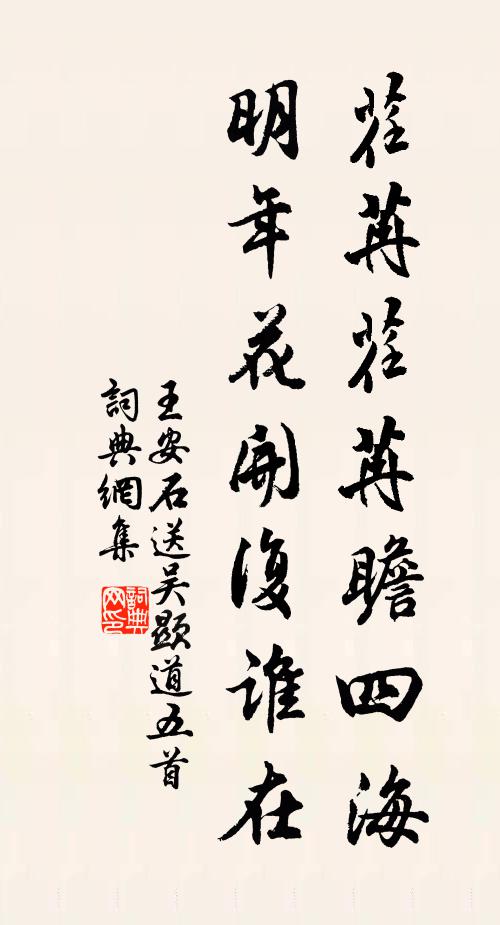 荏苒荏苒瞻四海
明年花開復誰在
王安石送吴顯道五首
詞典網集
詞典网印